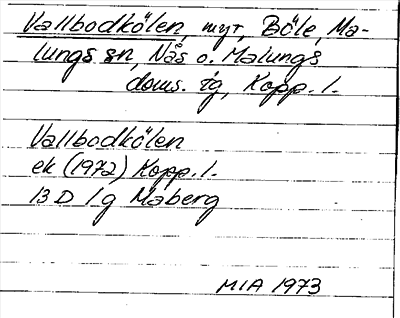 Vallbodkölen, myr, Böle Ma-
lungs sn, Nås o. Malungs
doms. tg, Kopp. l.
Vallbodkölen
ek (1972) Kopp. l.
13 D 1g Maberg
MIA 1973